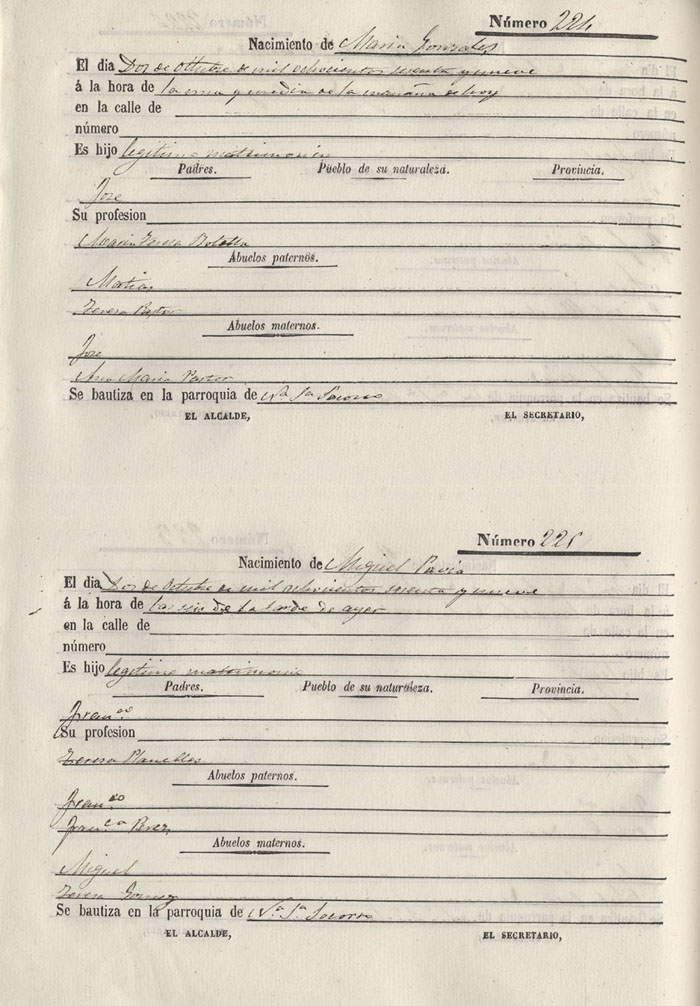 Número 224
Nacimiento de Maria Gonzales
El dia Dos de Octubre de mil ochocientos sesenta y nueve
á la hora de la una y media de la mañana de hoy
en la calle de
número
Es hijo legitimo matrimonio
Padres. Pueblo de su naturaleza. Provincia.
Jose
Su profesion
Maria Teresa
Abuelos paternos.
Matias
Teresa Pastor
Abuelos maternos.
Jose
Ana Maria Pastor
Se bautiza en la parroquia de Nª Sª Socorro
EL ALCALDE, EL SECRETARIO,
Número 225
Nacimiento de Miguel Pavia
El dia Dos de Octubre de mil ochocientos sesenta y nueve
á la hora de las seis de la tarde de ayer
en la calle de
número
Es hijo legitimo matrimonio
Padres. Pueblo de su naturaleza. Provincia.
Franco
Su profesion
Teresa Planelles
Abuelos paternos.
Franco
Franca Perez
Abuelos maternos.
Miguel
Teresa Gomez
Se bautiza en la parroquia de Nª Sª Socorro
EL ALCALDE, EL SECRETARIO,